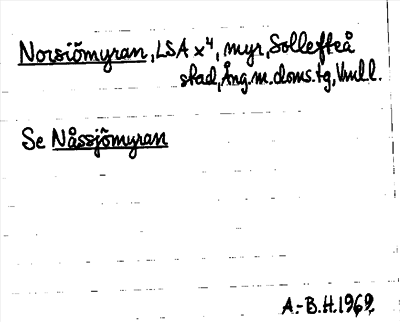 Norsiömyran, LSA x⁴, myr, Sollefteå
stad, Ång. m. doms. tg, Vnll.
Se Nåssjömyran
A.-B.H. 1969.